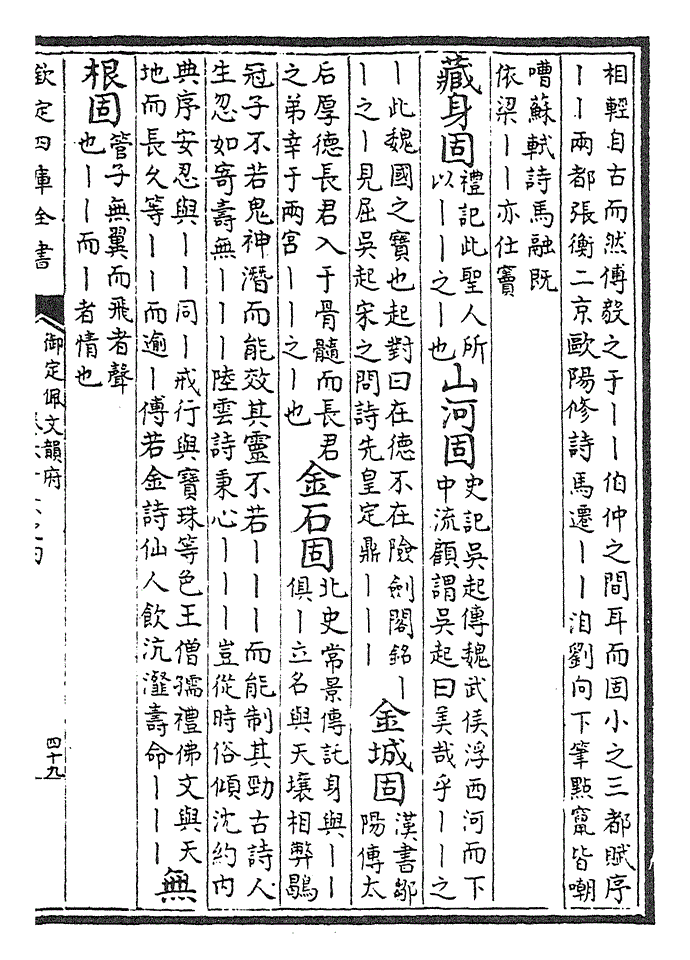 相輕自古而然傅毅之于｜｜伯仲之間耳而固小之三都賦序
｜｜兩都張衡二京歐陽修詩馬遷｜｜洎劉向下筆點竄皆嘲
嘈蘇軾詩馬融既
依梁｜｜亦仕竇
藏身固
禮記此聖人所
以｜｜之｜也
山河固
史記吳起傳魏武侯浮西河而下
中流顧謂吳起曰美哉乎｜｜之
｜此魏國之寶也起對曰在德不在險劍閣銘｜
｜之｜見屈吳起宋之問詩先皇定鼎｜｜｜
金城固
漢書鄒
陽傳太
后厚德長君入于骨髓而長君
之弟幸于兩宮｜｜之｜也
金石固
北史常景傳託身與｜｜
俱｜立名與天壤相弊鶡
冠子不若鬼神潛而能效其靈不若｜｜｜而能制其勁古詩人
生忽如寄壽無｜｜｜陸雲詩秉心｜｜｜豈從時俗傾沈約内
典序安忍與｜｜同｜戒行與寶珠等色王僧孺禮佛文與天
地而長久等｜｜而逾｜傅若金詩仙人飲沆瀣壽命｜｜｜
無
根固
管子無翼而飛者聲
也｜｜而｜者情也
欽定四庫全書
御定佩文韻府
四十九